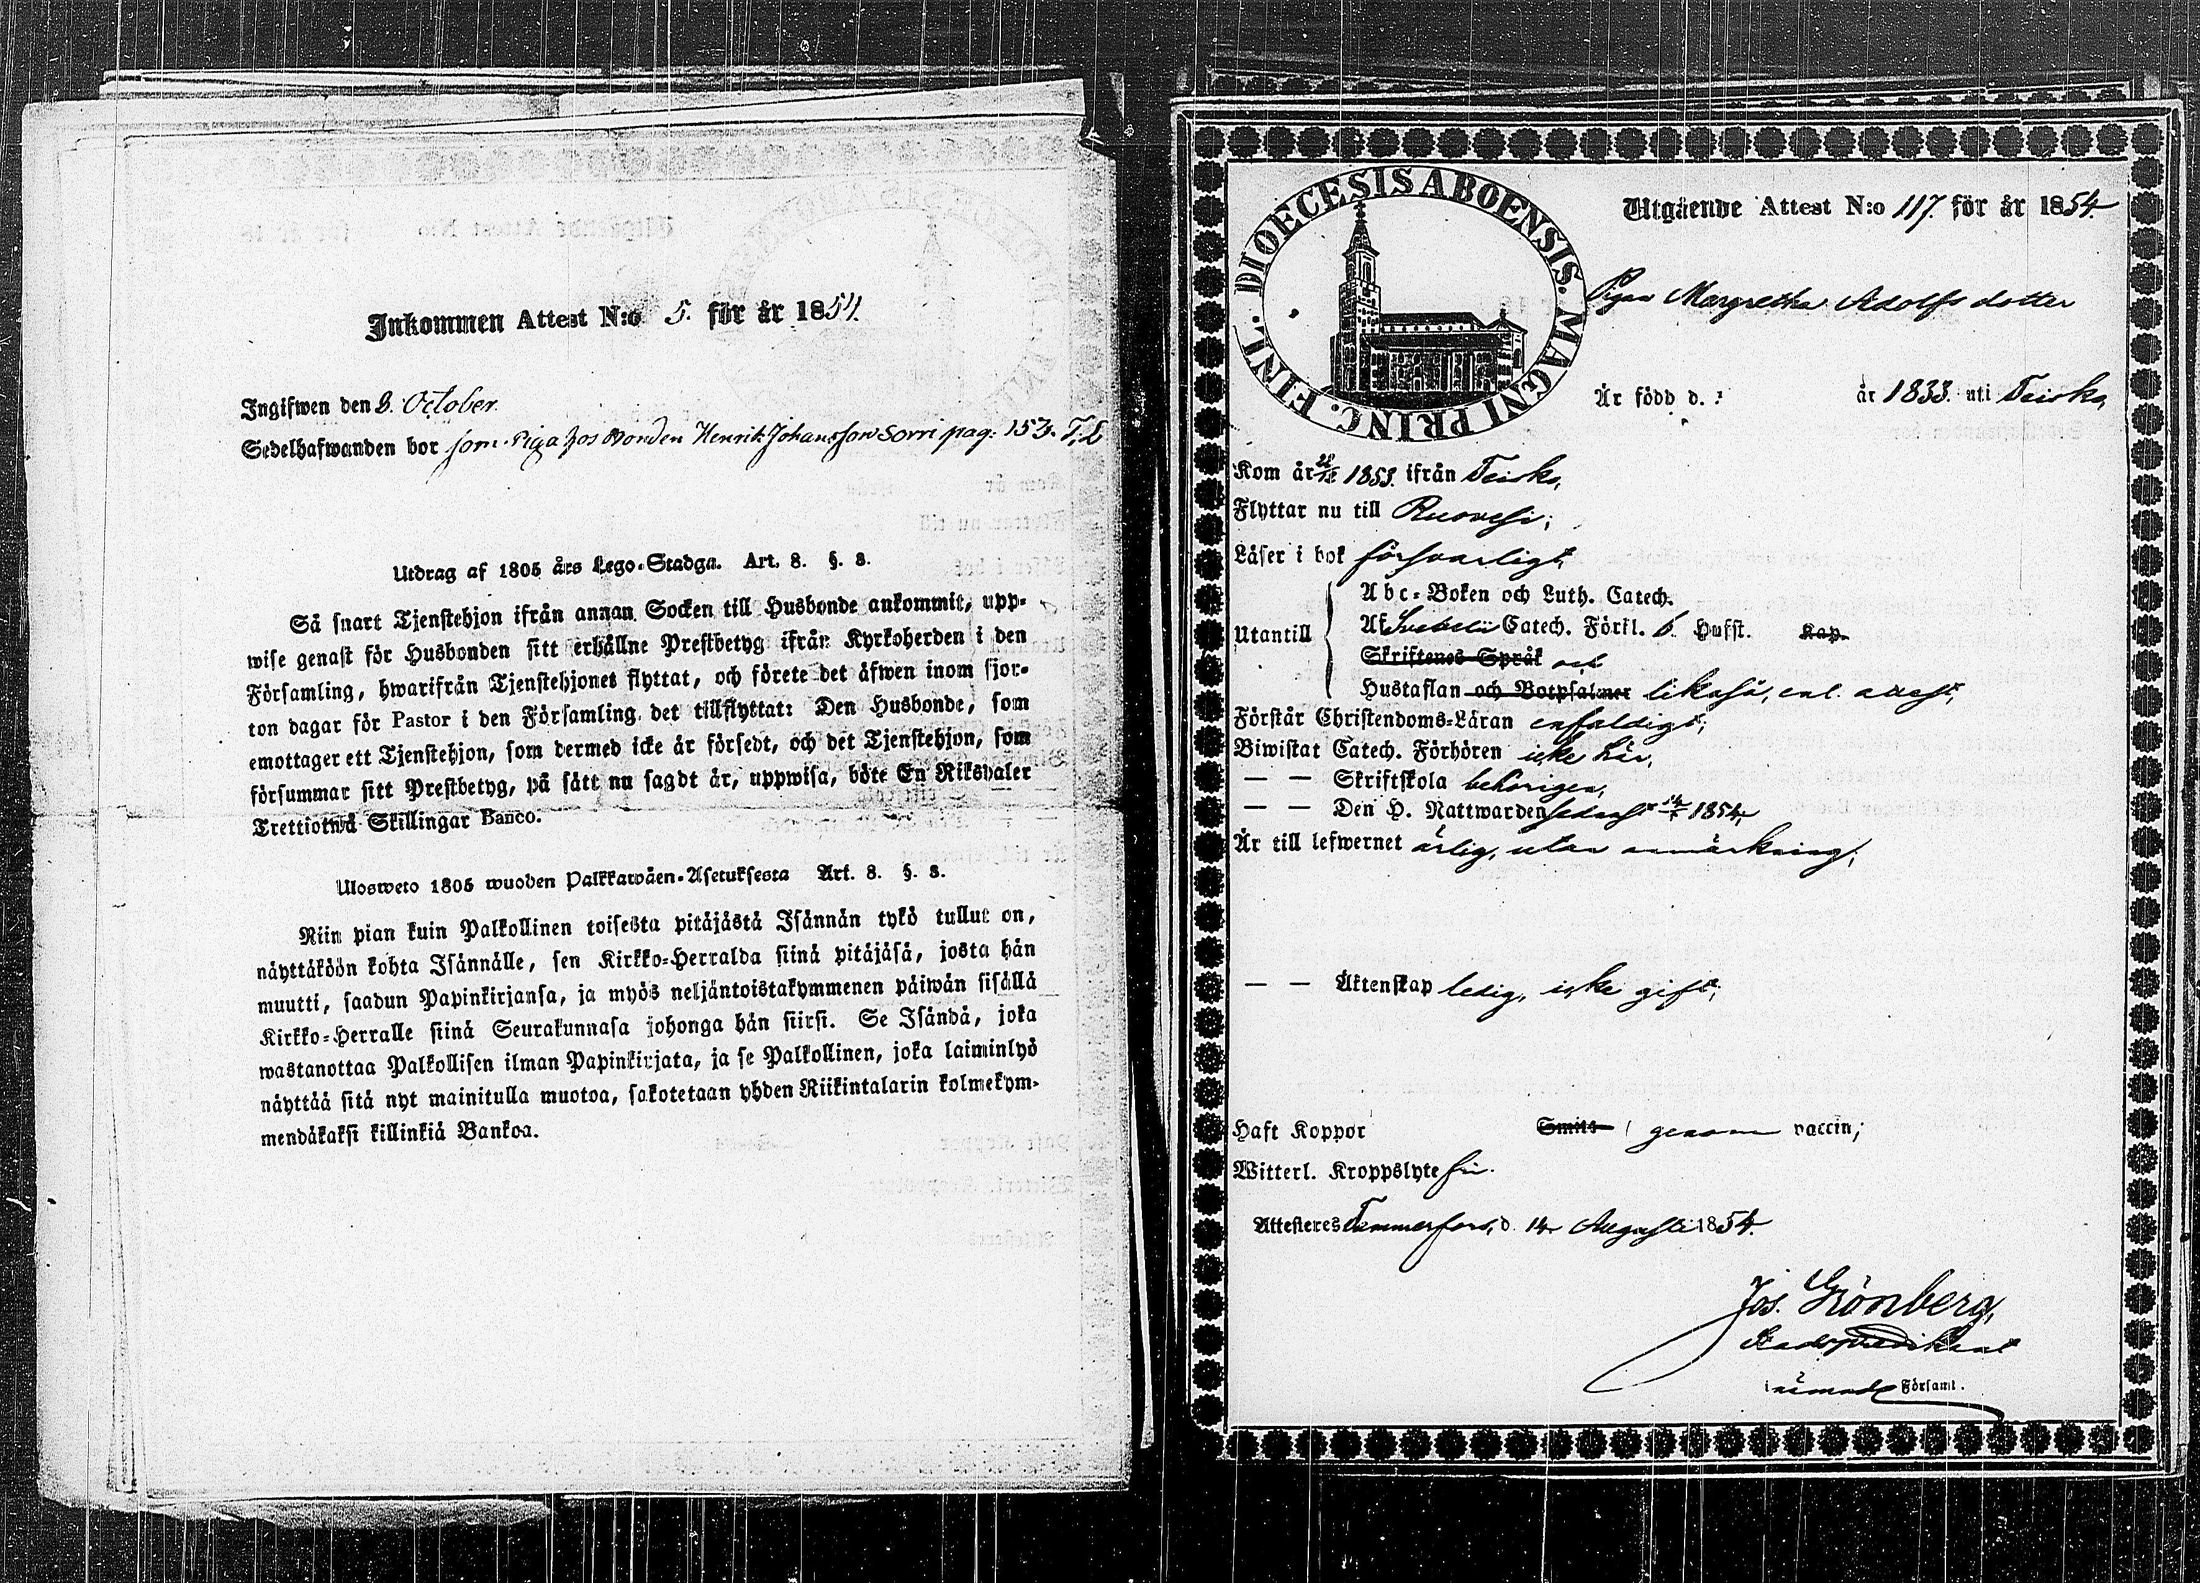 Inkommen Attest N:o 5. för år 1854.
Ingifwen den 8. October.
Sedelhafwanden bor som Piga hos Bonden Henrik Johansson Sorri pag: 153.
Utdrag af 1805 års Lego-Stadga. Art. 8. §. 3.
Så snart Tjenstehjon ifrån annan Socken till Husbonde ankommit, upp-
wise genast för Husbonden sitt erhållne Prestbetyg ifrån Kyrkoherden i den
Församling, hwarifrån Tjenstehjonet flyttat, och förete det äfwen inom fjor-
ton dagar för Pastor i den Församling det tillflyttat: Den Husbonde, som
emottager ett Tjenstehjon, som dermed icke är försedt, och det Tjenstehjon, som
försummar sitt Prestbetyg, på sätt nu sagdt är, uppwisa, böte En Riksdaler
Trettiotwå Skillingar Banco.
Ulosweto 1805 wuoden Palkkawäen-Asetuksesta Art. 8. §. 3.
Niin pian kuin Palkollinen toisesta pitäjästä Isännän tykö tullut on,
näyttäköön kohta Isännälle, sen Kirkko-Herralda siinä pitäjäsä, josta hän
muutti, saadun Papinkirjansa, ja myös neljäntoistakymmenen päiwän sisällä
Kirkko-Herralle siinä Seurakunnasa johonga hän siirsi. Se Isändä, joka
wastanottaa Palkollisen ilman Papinkirjata, ja se Palkollinen, joka laiminlyö
näyttää sitä nyt mainitulla muotoa, sakotetaan yhden Riikintalarin kolmekym-
mendäkaksi killinkiä Bankoa.
DIOECESIS ABOENSIS. MAGNI PRINC. FINL.
Utgående Attest N:o 117. för år 1854.
Pigan Margretha Adolfs dotter
Är född d. : år 1833. uti Teisko,
Kom år 1853. ifrån Teisko,
Flyttar nu till Ruovesi;
Läser i bok försvarligt
Utantill
Abc-Boken och Luth. Catech.
Af Svebelii Catech. Förkl. 5. Hufst. Kap.
Skriftenes Språk och
Hustaflan och Botpsalmer likaså, enl. attest,
Förstår Christendoms-Läran enfaldigt;
Biwistat Catech. Förhören icke här,
— — Skriftskola behörigen,
— — Den H. Nattwarden sednast 1854,
Är till lefwernet ärlig, utan anmärkning;
— — Äktenskap ledig, icke gift;
Haft Koppor Smitt genom vaccin;
Witterl. Kroppslyte fri.
Attesteres Tammerfors, d. 14 Augusti 1854.
Jos. Grönberg,
Stadspredikant
i nämnde Församl.